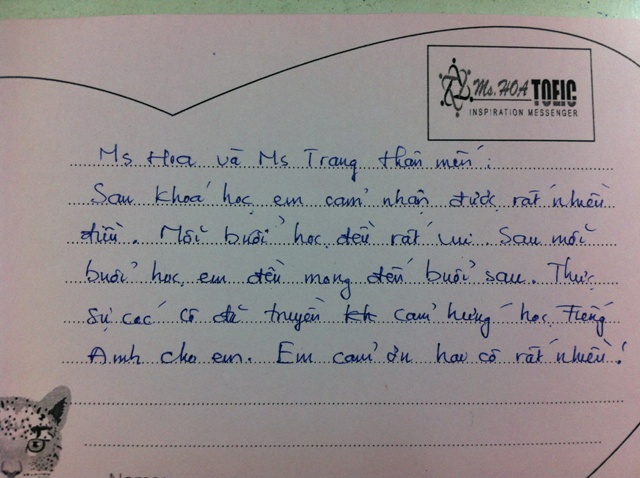 Ms. HOA TOEIC
INSPIRATION MESSENGER
Ms Hoa và Ms Trang thân mến:
Sau khoá học, em cảm nhận được rất nhiều
điều. Mỗi buổi học đều rất vui. Sau mỗi
buổi học, em đều mong đến buổi sau. Thực
sự các cô đã truyền kh cảm hứng học Tiếng
Anh cho em. Em cảm ơn hai cô rất nhiều!